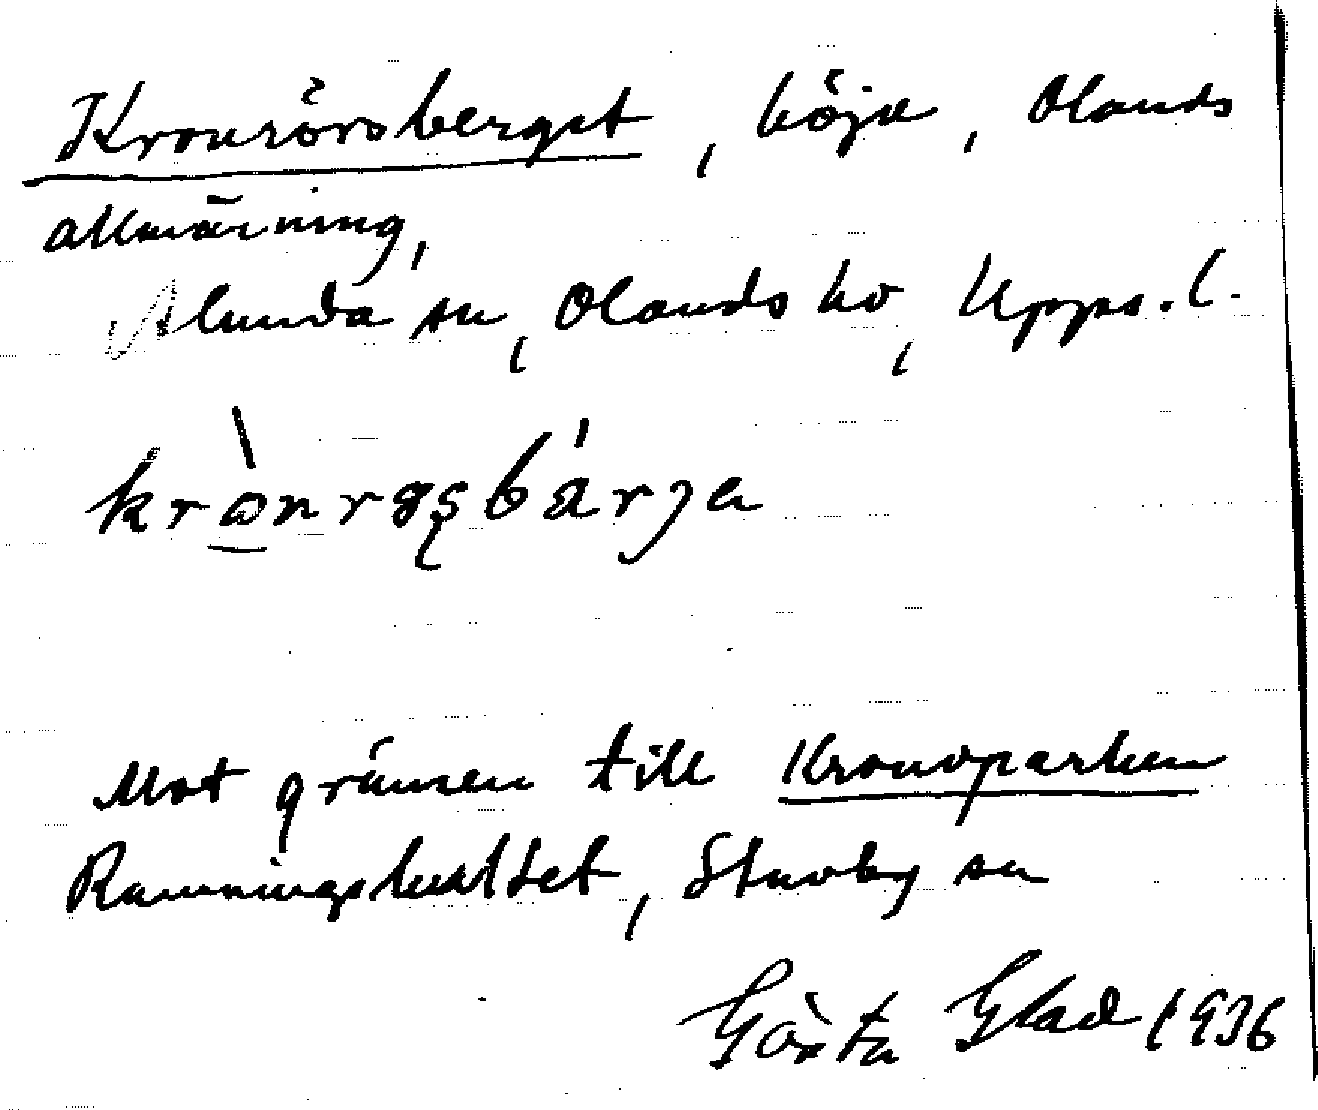 Kronrörsberget, höjd, Olands
allmänning,
Alunda sn, Olands hd, Upps. l.
krònrøṣbárja
Mot gränsen till Kronoparken
Ramningshultet, Stavby sn
Gösta Glad 1936